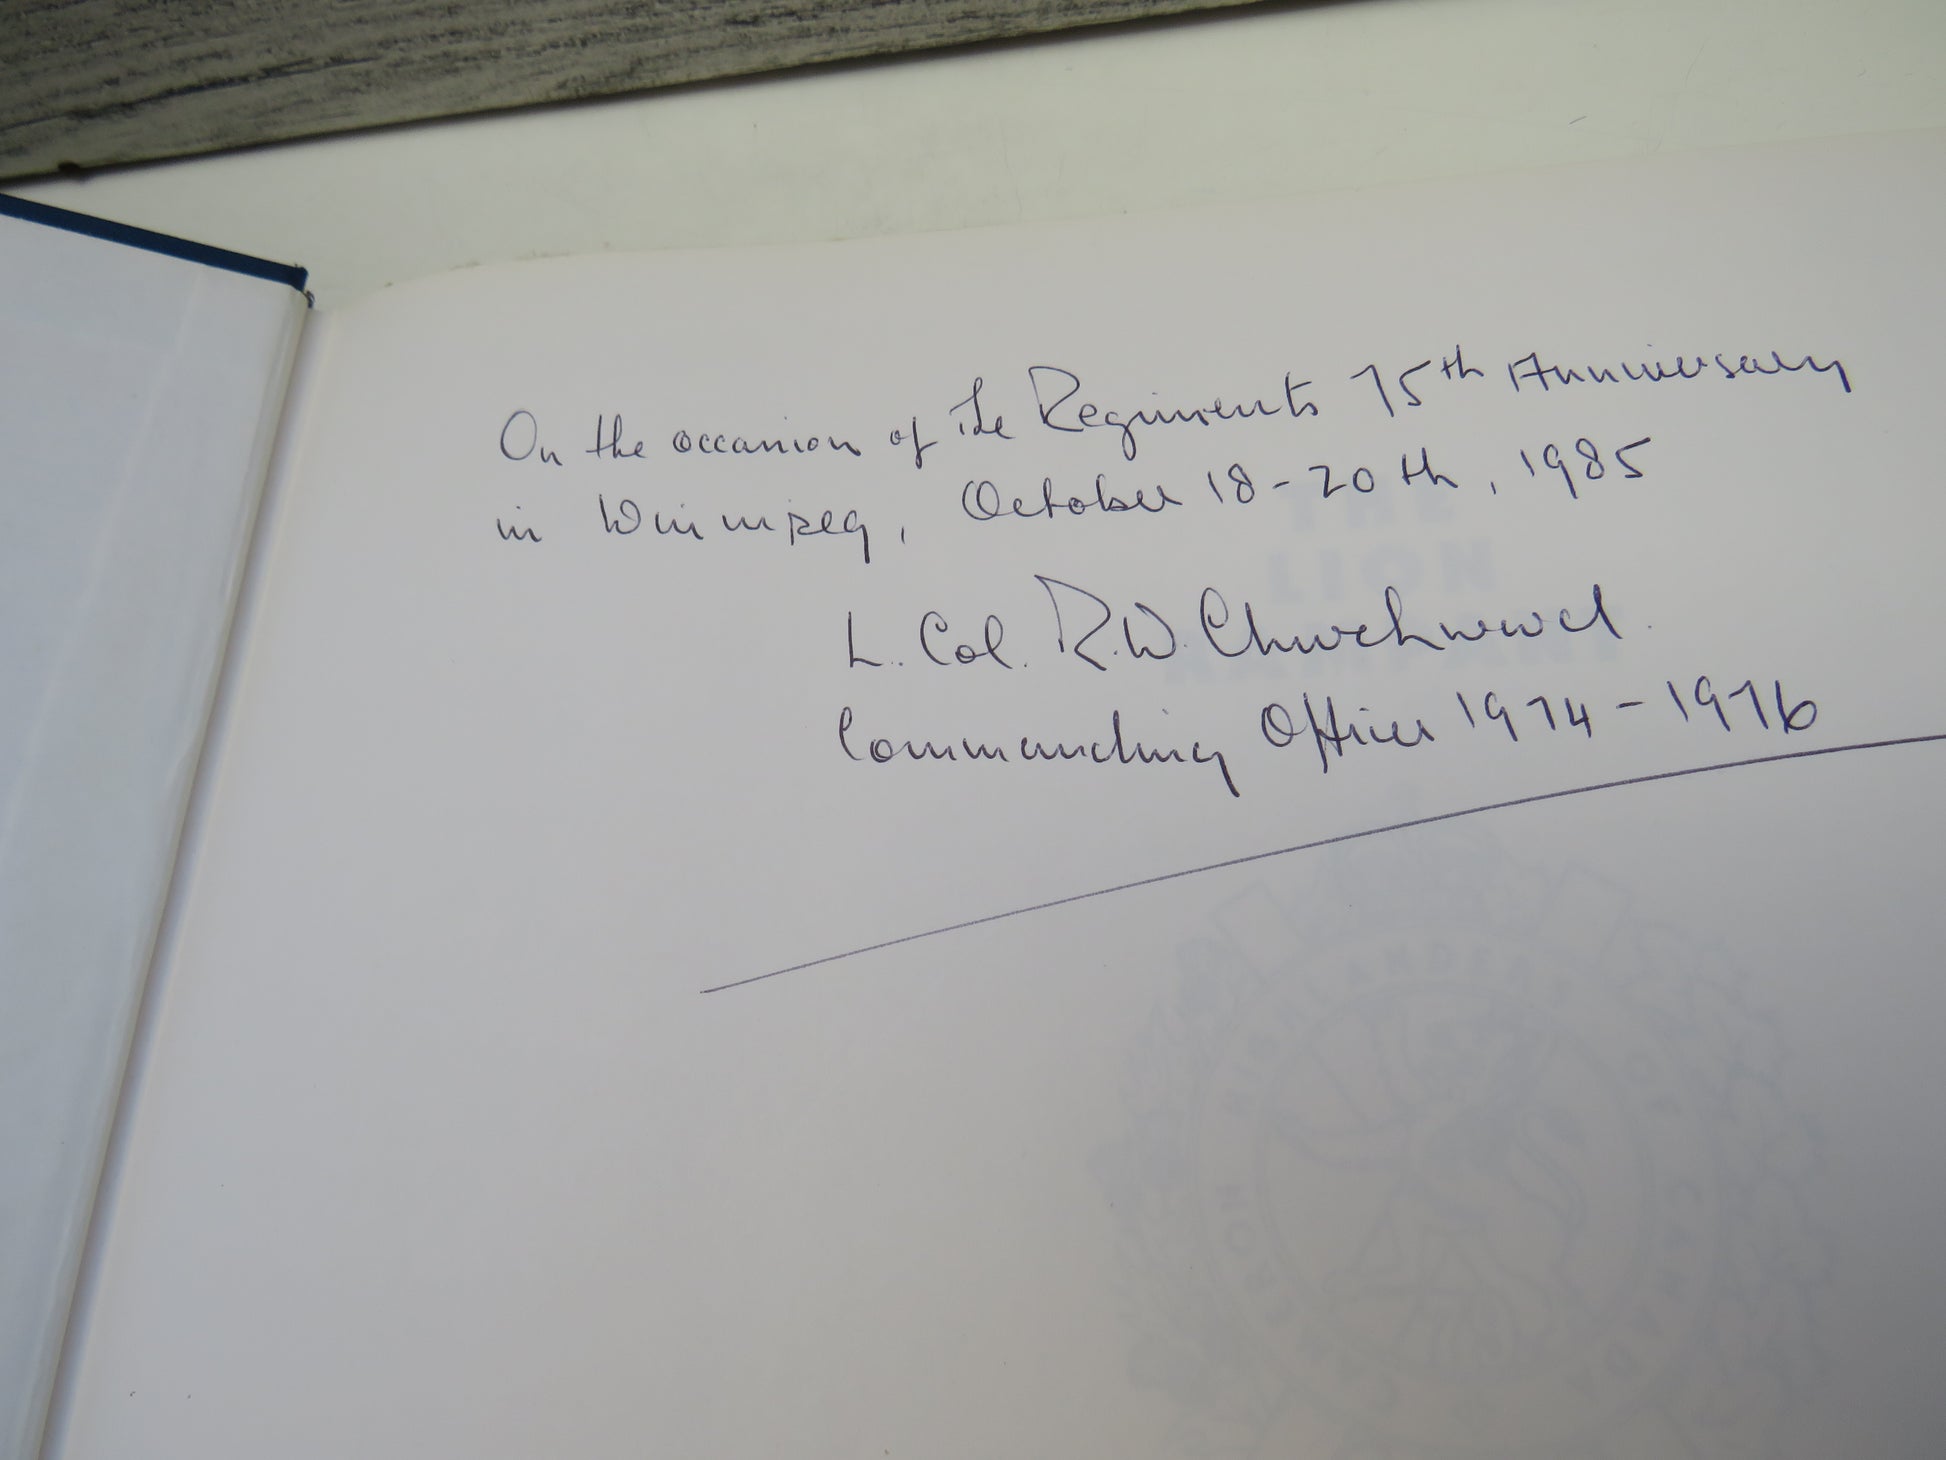 On the occasion of the Regiments 75th Anniversary
in Winnipeg, October 18-20th, 1985
L. Col. R.W. Churchward.
Commanding Officer 1974-1976
THE
LION
RAMPANT
HIGHLANDERS OF CANADA